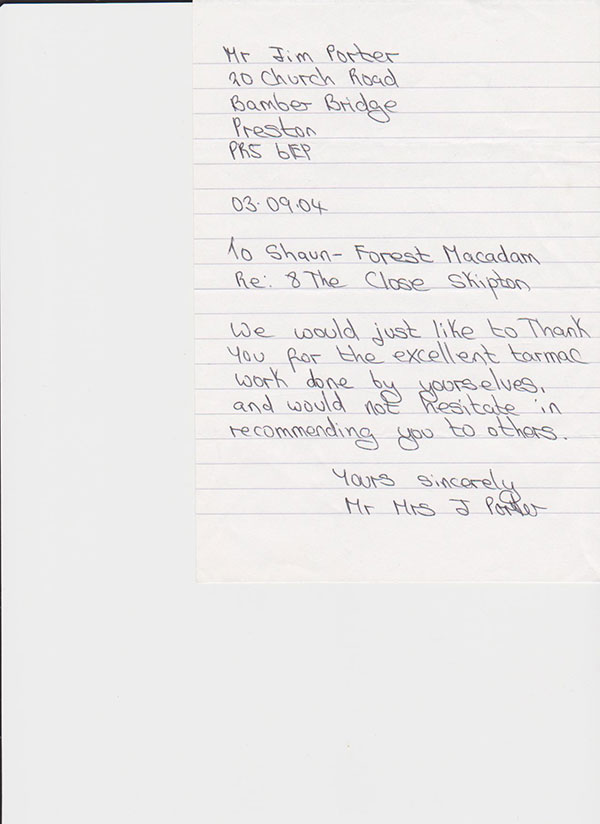 Mr Jim Porter
20 Church Road
Bamber Bridge
Preston
PR5 6EP
03.09.04
To Shaun - Forest Macadam
Re: 8 The Close Skipton
We would just like to Thank
you for the excellent tarmac
work done by yourselves,
and would not hesitate in
recommending you to others.
Yours sincerely
Mr Mrs J Porter